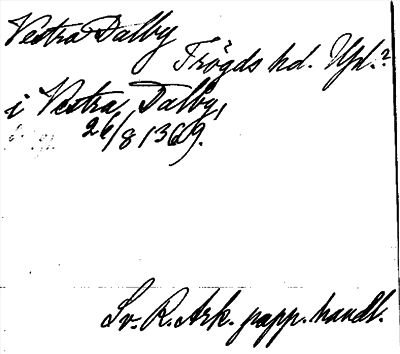 Vestra Dalby
Trögds hd. Upl.?
i Vestra Dalby,
26/8 1369.
Sv. R. Ark. papp. handl.